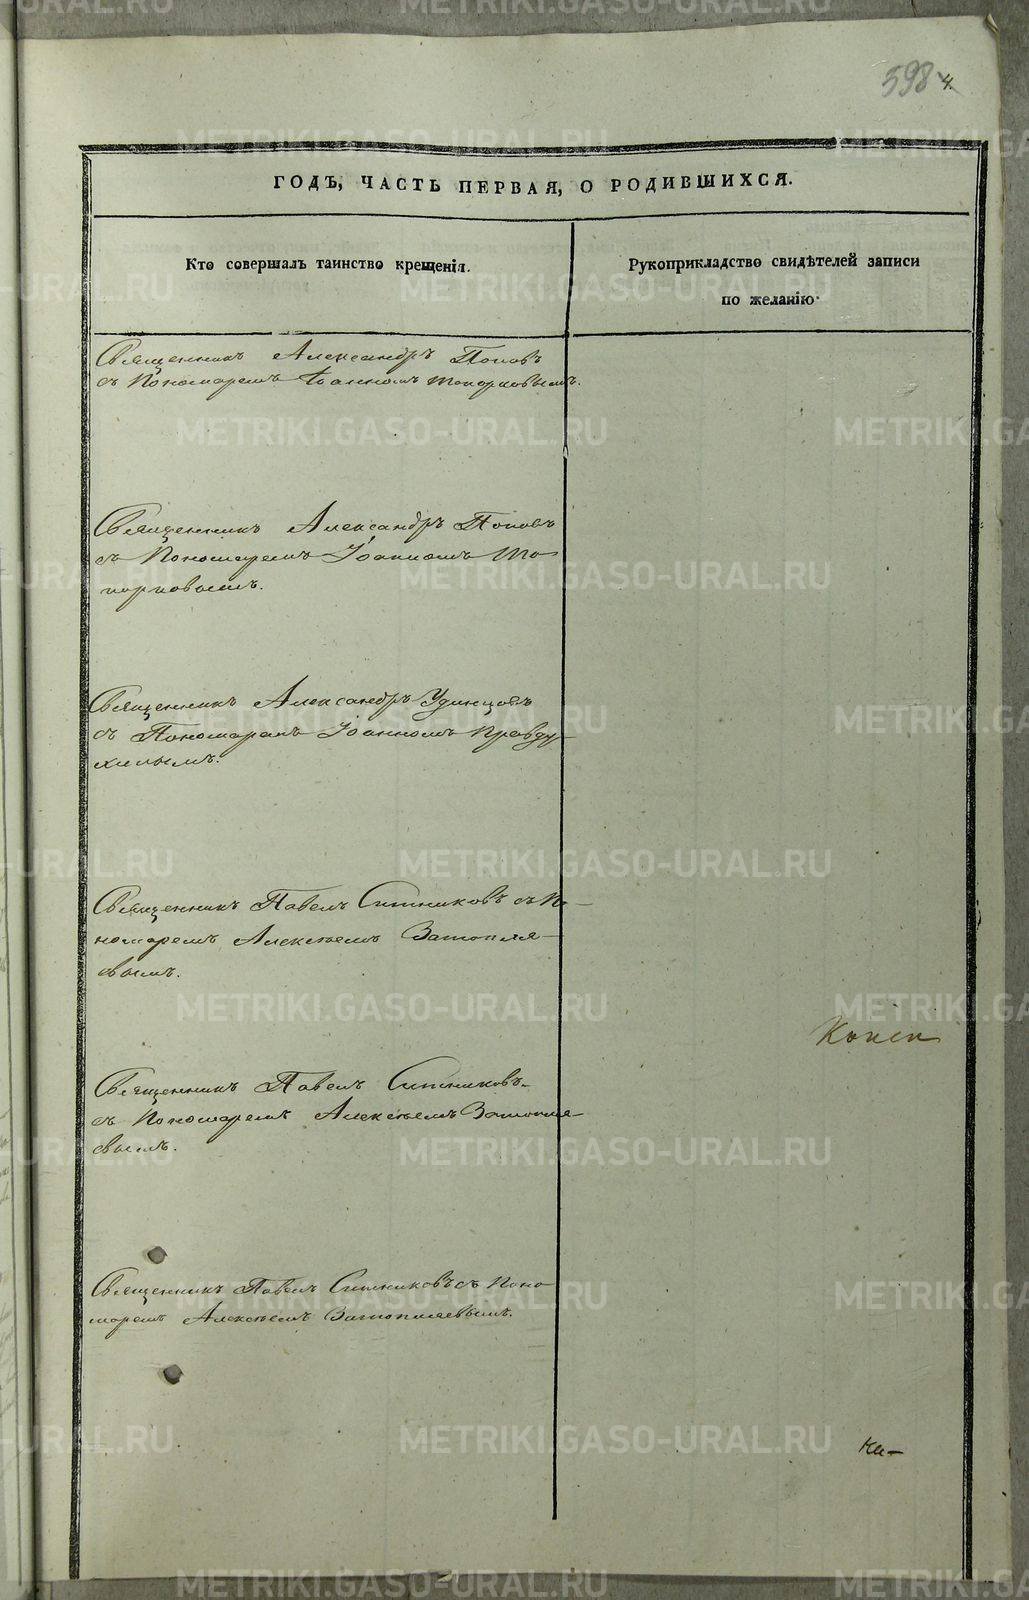 598 4.
ГОДЪ, ЧАСТЬ ПЕРВАЯ, О РОДИВШИХСЯ.
Кто совершалъ таинство крещенія.
Рукоприкладство свидѣтелей записи
по желанію.
Священникъ Александръ Поповъ
съ Пономаремъ Іоанномъ Топорковымъ.
Священникъ Александръ Поповъ
съ Пономаремъ Іоанномъ То-
порковымъ.
Священникъ Александръ Удинцовъ
съ Пономаремъ Іоанномъ Правду-
хинымъ.
Священникъ Павелъ Ситниковъ съ По-
номаремъ Алексѣемъ Затопля-
евымъ.
Священникъ Павелъ Ситниковъ
съ Пономаремъ Алексѣемъ Затопля-
евымъ.
Священникъ Павелъ Ситниковъ съ Поно-
маремъ Алексѣемъ Затопляевымъ.
METRIKI.GASO-URAL.RU